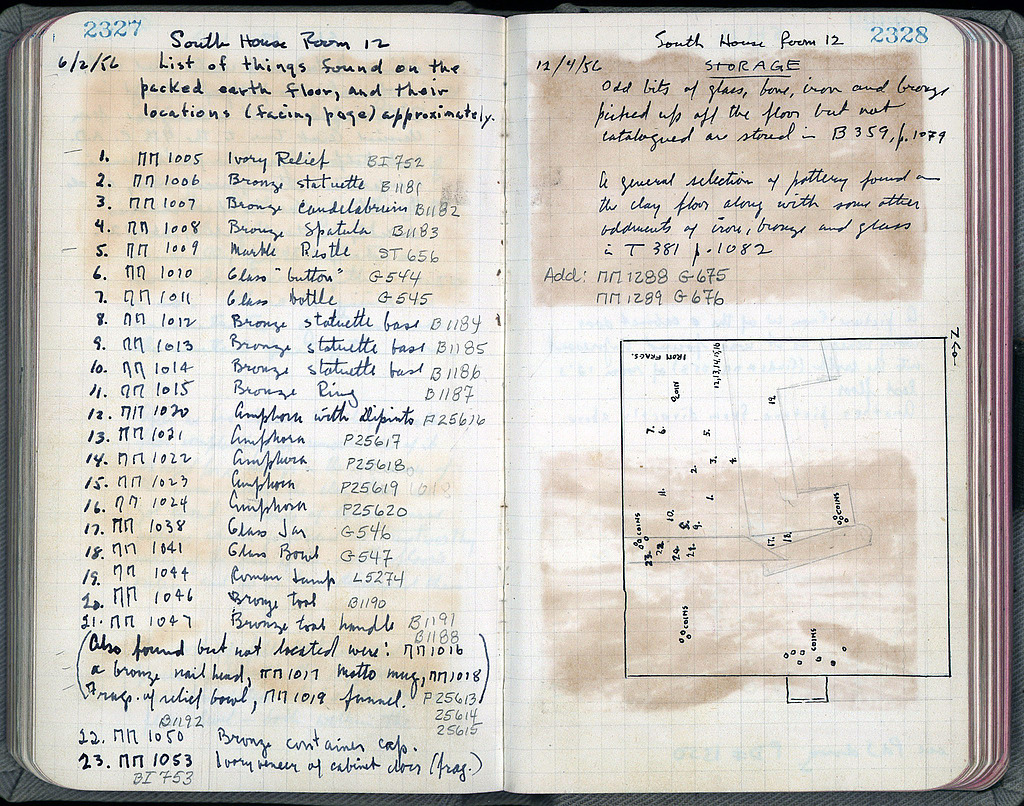 2327
South House Room 12
6/2/56 List of things found on the
packed earth floor, and their
locations (facing page) approximately.
1. ΠΠ 1005 Ivory Relief BI 752
2. ΠΠ 1006 Bronze statuette B1181
3. ΠΠ 1007 Bronze candelabrum B1182
4. ΠΠ 1008 Bronze Spatula B1183
5. ΠΠ 1009 Marble Pestle ST 656
6. ΠΠ 1010 Glass "button" G544
7. ΠΠ 1011 Glass bottle G545
8. ΠΠ 1012 Bronze statuette base B1184
9. ΠΠ 1013 Bronze statuette base B1185
10. ΠΠ 1014 Bronze statuette base B1186
11. ΠΠ 1015 Bronze Ring B1187
12. ΠΠ 1020 Amphora with Dipinto P25616
13. ΠΠ 1021 Amphora P25617
14. ΠΠ 1022 Amphora P25618
15. ΠΠ 1023 Amphora P25619
16. ΠΠ 1024 Amphora P25620
17. ΠΠ 1038 Glass Jar G546
18. ΠΠ 1041 Glass Bowl G547
19. ΠΠ 1044 Roman Lamp L5274
20. ΠΠ 1046 Bronze tool B1190
21. ΠΠ 1047 Bronze tool handle B1191
B1188
(Also found but not located were: ΠΠ 1016
a bronze nail head, ΠΠ 1017 Motto mug, ΠΠ 1018
Frags. of relief bowl, ΠΠ 1019 funnel. P25613)
25614
25615
B1192
22. ΠΠ 1050 Bronze container cap.
23. ΠΠ 1053 Ivory veneer of cabinet door (frag.)
BI 753
2328
South House Room 12
12/4/56 STORAGE
Odd bits of glass, bone, iron and bronze
picked up off the floor but not
catalogued are stored in B 359, p. 1079
A general selection of pottery found on
the clay floor along with some other
oddments of iron, bronze and glass
in T 381 p. 1082
Add: ΠΠ 1288 G 675
ΠΠ 1289 G 676
N
IRON FRAGS.
12,13,14,15,16
COIN
19.
7.
6.
5.
3.
4.
2.
11.
1.
10.
8.
9.
COINS
COINS
23.
22.
20.
21.
17.
18.
COINS
COINS